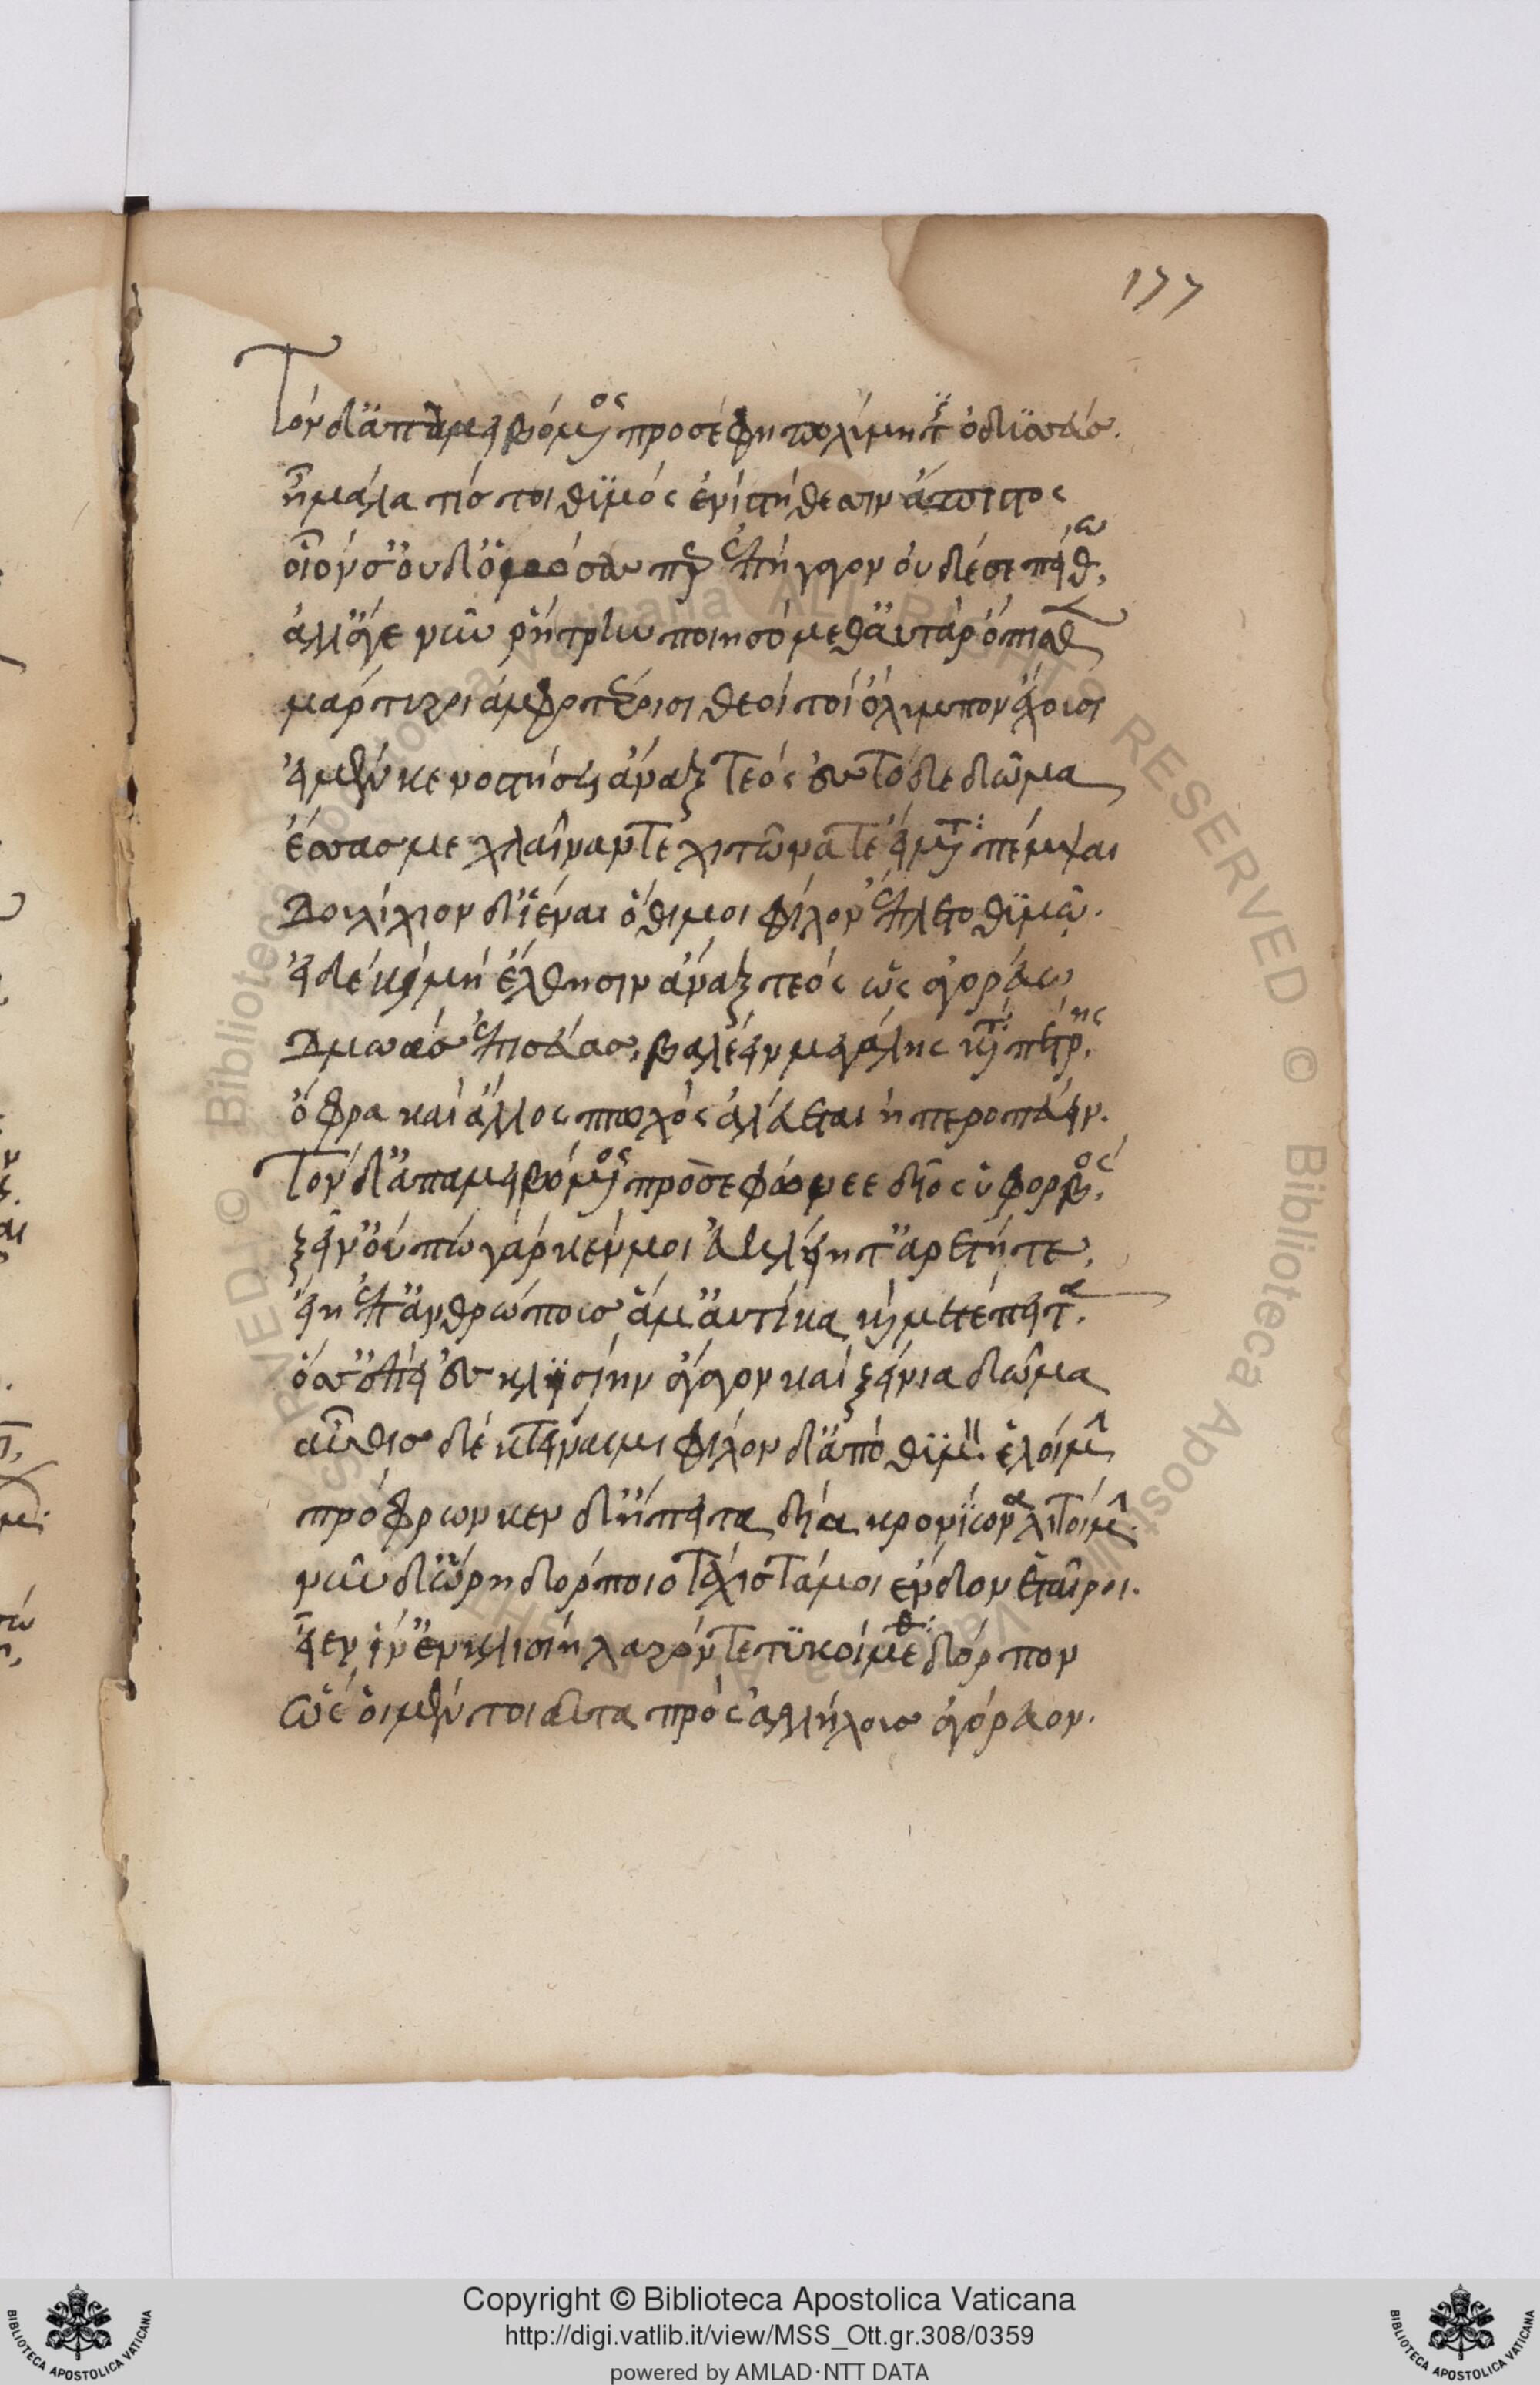 177
Τὸν δ' ἀπαμειβόμενος προσέφη πολύμητις ὀδυσσεύς.
ἦ μάλα τίς τοι θυμὸς ἐνὶ στήθεσιν ἄπιστος
οἷόν σ' οὐδ' ὀμόσας περ ἐπήγαγον οὐδέ σε πείθω,
ἀλλ' ἄγε νῦν ῥήτρην ποιησόμεθ' αὐτὰρ ὄπισθεν
μάρτυροι ἀμφοτέροισι θεοὶ τοὶ ὄλυμπον ἔχουσι
εἰ μέν κε νοστήσει ἄναξ τεὸς ἐς τόδε δῶμα
ἕσσας με χλαῖνάν τε χιτῶνά τε εἵματα πέμψαι
Δουλίχιον δ' ἰέναι ὅθι μοι φίλον ἔπλετο θυμῶ.
εἰ δέ κε μὴ ἔλθησιν ἄναξ τεὸς ὡς ἀγορεύω
Δμῶας ἐπισσεύας, βαλέειν μεγάλης κατὰ πέτρης,
ὄφρα καὶ ἄλλος πτωχὸς ἀλεύεται ἠπεροπεύειν.
Τὸν δ' ἀπαμειβόμενος προσεφώνεε δῖος ὑφορβός,
ξεῖν' οὕτω γάρ κέν μοι ἐϋκλείη τ' ἀρετή τε,
εἴη ἐπ' ἀνθρώποις ἅμα τ' αὐτίκα καὶ μετέπειτα.
ὅς σ' ἐπεὶ ἐς κλισίην ἄγαγον καὶ ξείνια δῶκα
αὖθις δὲ κτείναιμι φίλον δ' ἀπὸ θυμὸν ἑλοίμην
πρόφρων κεν δὴ ἔπειτα δία κρονίωνα λιτοίμην.
νῦν δ' ὥρη δόρποιο τάχιστά μοι ἔνδον ἑταῖροι.
εἶεν ἵν' ἐν κλισίη λαρόν τετυκοίμεθα δόρπον
Ὣς οἱ μὲν τοιαῦτα πρὸς ἀλλήλους ἀγόρευον.
Copyright © Biblioteca Apostolica Vaticana
http://digi.vatlib.it/view/MSS_Ott.gr.308/0359
powered by AMLAD·NTT DATA